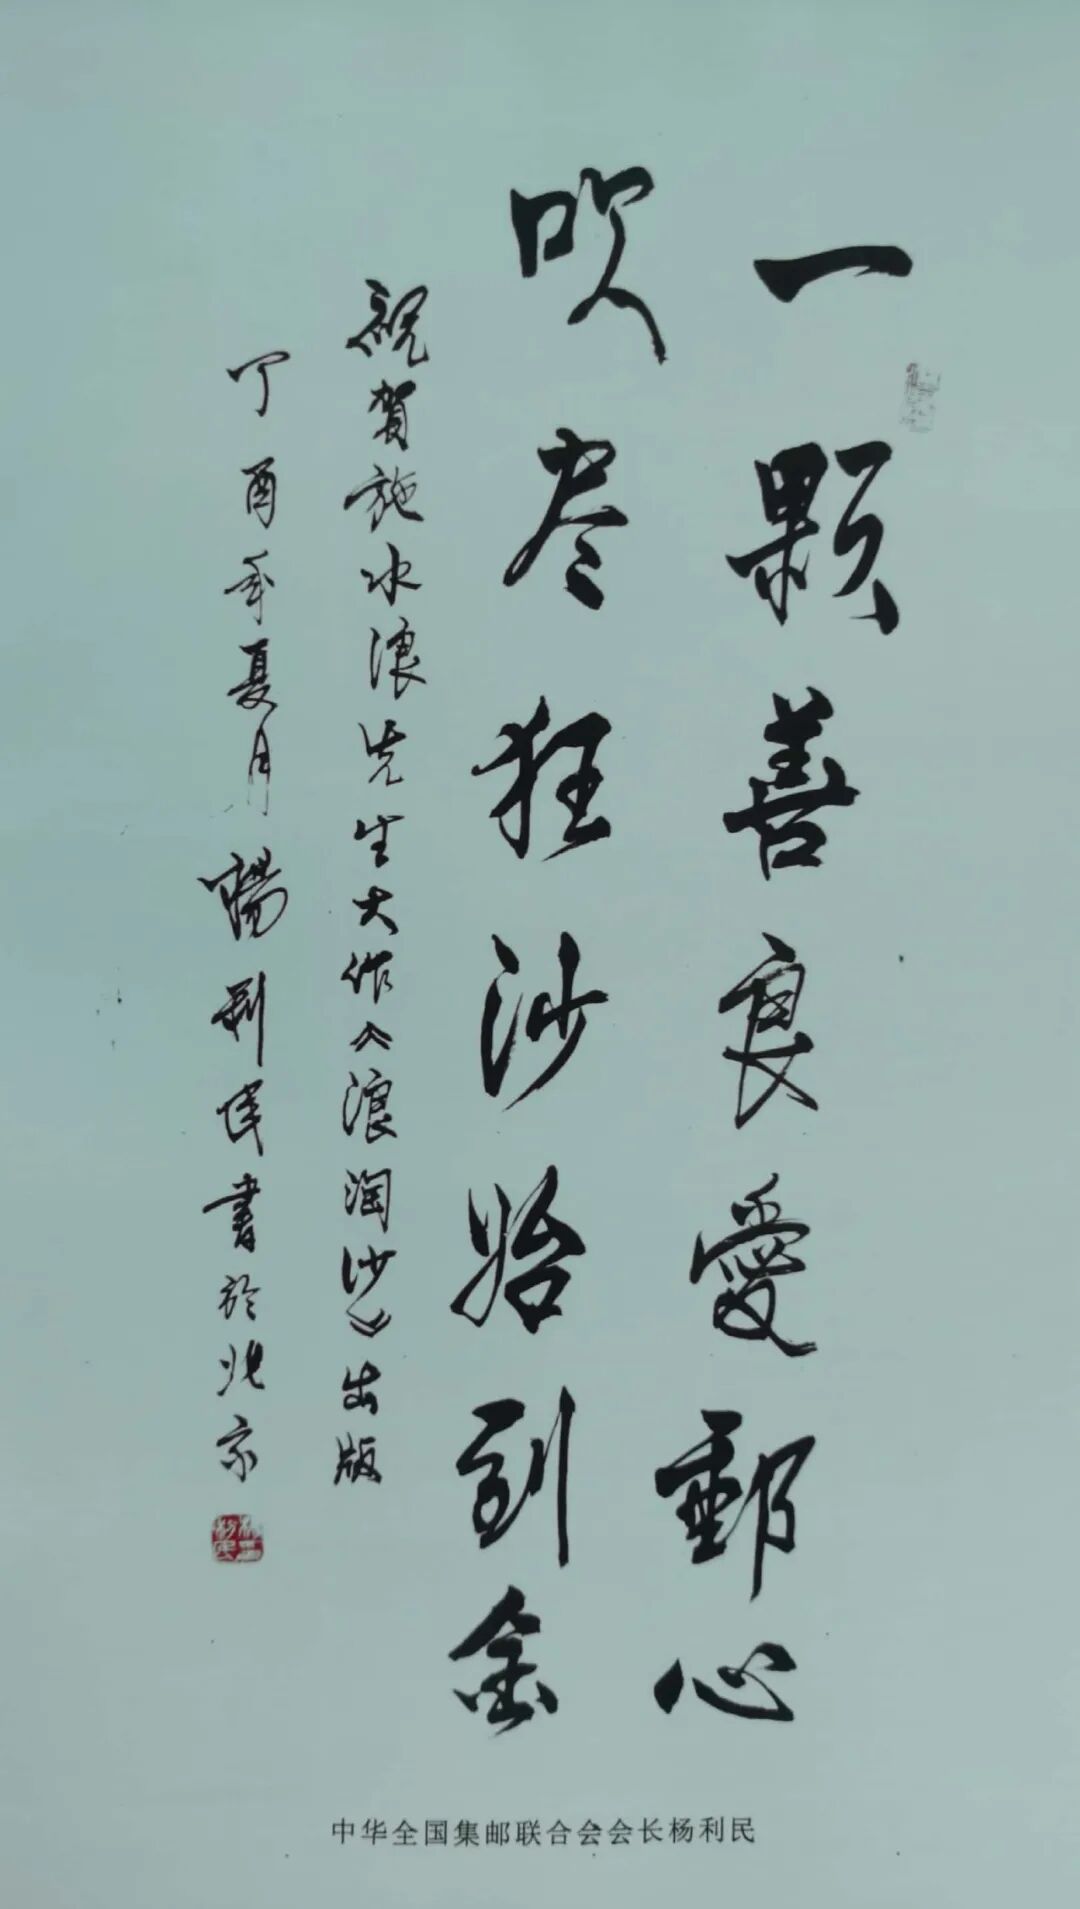 一颗善良爱郵心
吹尽狂沙始到金
祝贺施水浪先生大作《浪淘沙》出版
丁酉年夏月楊利民書於北京
中华全国集邮联合会会长杨利民